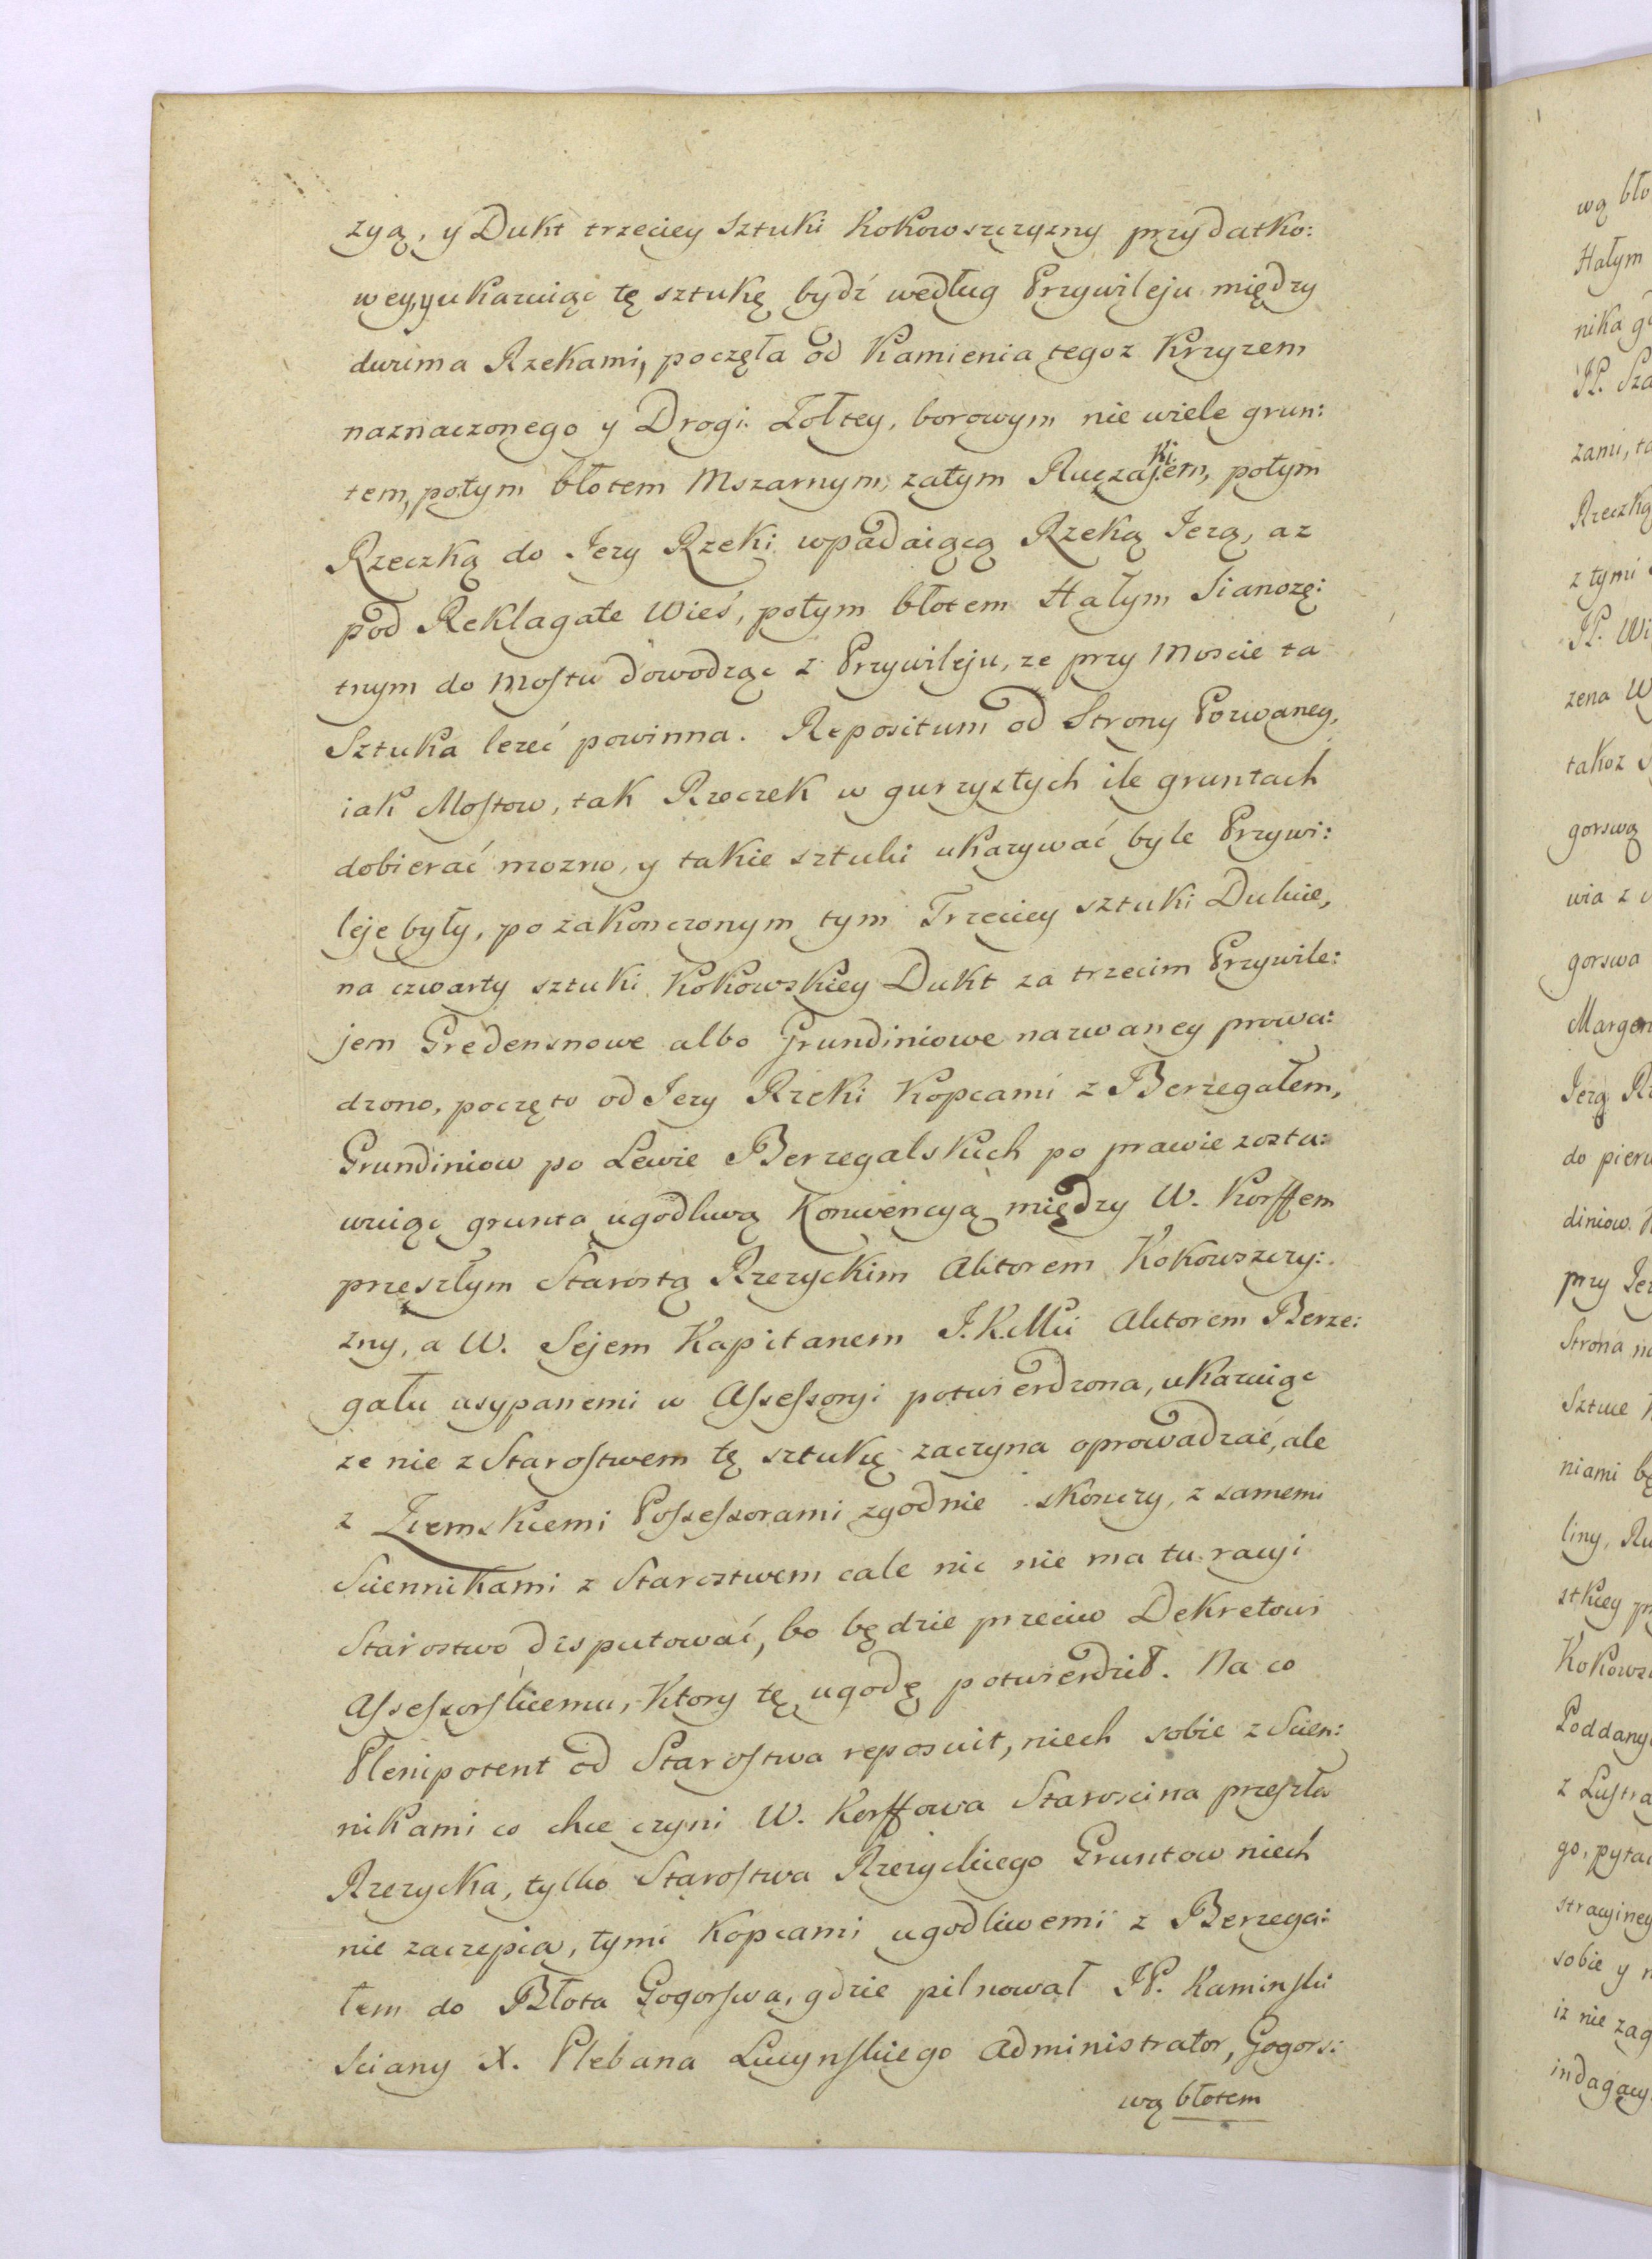 zyą, y Dukt trzeciey Sztuki Kokowszczyzny przydatko:
wey, y ukazuiąc tę sztukę bydź według Przywileju między
dwuma Rzekami, poczęła od Kamienia tegoz Krzyzem
naznaczonego y Drogi Zołtey, borowym nie wiele grun:
tem, potym błotem Mszarnym, zatym Ruczajkiem, potym
Rzeczką do Jezy Rzeki wpadaiącą Rzeką Jezą, az
pod Reklagale Wieś, potym błotem Hałym Sianozę:
tnym do Mostu dowodząc z Przywileju, ze przy Moscie ta
Sztuka lezeć powinna. Repositum od Strony Pozwaney,
iak Mostow, tak Rzeczek w gurzystych ile gruntach
dobierać mozno, y takie sztuki ukazywać byle Przywi:
leje były, po zakonczonym tym Trzeciey sztuki Dukcie,
na czwarty sztuki Kokowskiey Dukt za trzecim Przywile:
jem Gredensnowe albo Grundiniowe nazwaney prowa:
dzono, poczęto od Jezy Rzeki Kopcami z Berzegałem,
Grundiniow po Lewie Berzegalskich po prawie zosta:
wuiąc grunta ugodliwą Konwencyą między W. Korffem
przeszłym Starostą Rzezyckim Aktorem Kokowszczy:
zny, a W. Sejem Kapitanem J.K.Mci Aktorem Berze:
gału usypanemi w Assessoryi potwierdzona, ukazuiąc
ze nie z Starostwem tę sztukę zaczyna oprowadzać, ale
z Ziemskiemi Possessorami zgodnie skonczy, z samemi
Sciennikami z Starostwem cale nic nie ma tu racyi
Starostwo disputować, bo będzie przeciw Dekretowi
Assessorskiemu, Ktory tę ugodę potwierdził. Na co
Plenipotent od Starostwa reposuit, niech sobie z Scien:
nikami co chce czyni W. Korffowa Staroscina przeszła
Rzezycka, tylko Starostwa Rzezyckiego Gruntow niech
nie zaczepia, tymi Kopcami ugodliwemi z Berzega:
łem do Błota Gogorswa, gdzie pilnował JP. Kaminski
Sciany X. Plebana Lucynskiego Administrator, Gogors:
wą błotem
wą bło
Hałym
nika
JP. Sza
zami,
Rzeczką
z tymi
JP. Wi
zena W
takoz
gorswą
wia z
gorswa
Margen
Jezą
do pierw
diniow.
przy
Strona
Sztuce
niami
liny,
Kokowsz
Poddany
z Lustra
go, pytać
stracyiney
sobie y
iz nie zag
indagacy